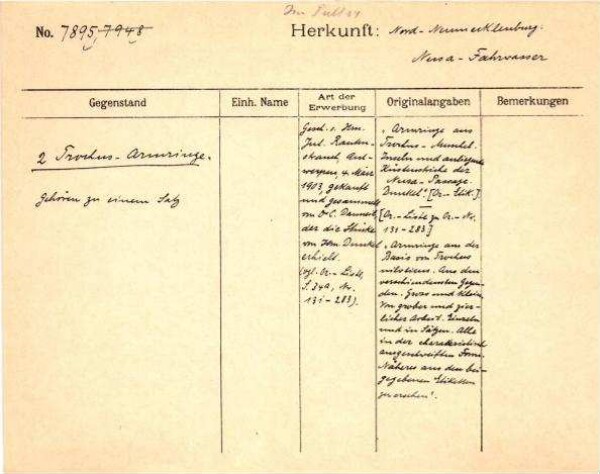 Im Pult 54
No. 7895, 7948
Herkunft: Nord-Neumecklenburg.
Nusa-Fahrwasser
Gegenstand
Einh. Name
Art der Erwerbung
Originalangaben
Bemerkungen
2 Trochus-Armringe.
Gehören zu einem Satz
Gesch. v. Hrn.
Jul. Rauten-
strauch, Ant-
werpen, 4. März
1903, gekauft
und gesammelt
von O. C. Dannert,
der die Stücke
von Hrn. Dunkel
erhielt.
(vgl. Or.-Liste,
S. 34a, Nr.
131-283).
"Armringe aus
Trochus-Muschel.
Inseln und anliegende
Küstenstriche der
Nusa-Passage.
Dunkel". [Or.-Etik.]
[Or.-Liste zu Or.-Nr.
131-283]
"Armringe aus der
Basis von Trochus
niloticus. Aus den
verschiedensten Gegen-
den. Gross und klein.
Von grober und zier-
licher Arbeit. Einzeln
und in Sätzen. Alle
in der charakteristisch
ausgeschweiften Form.
Näheres aus den bei-
gegebenen Etiketten
zu ersehen".